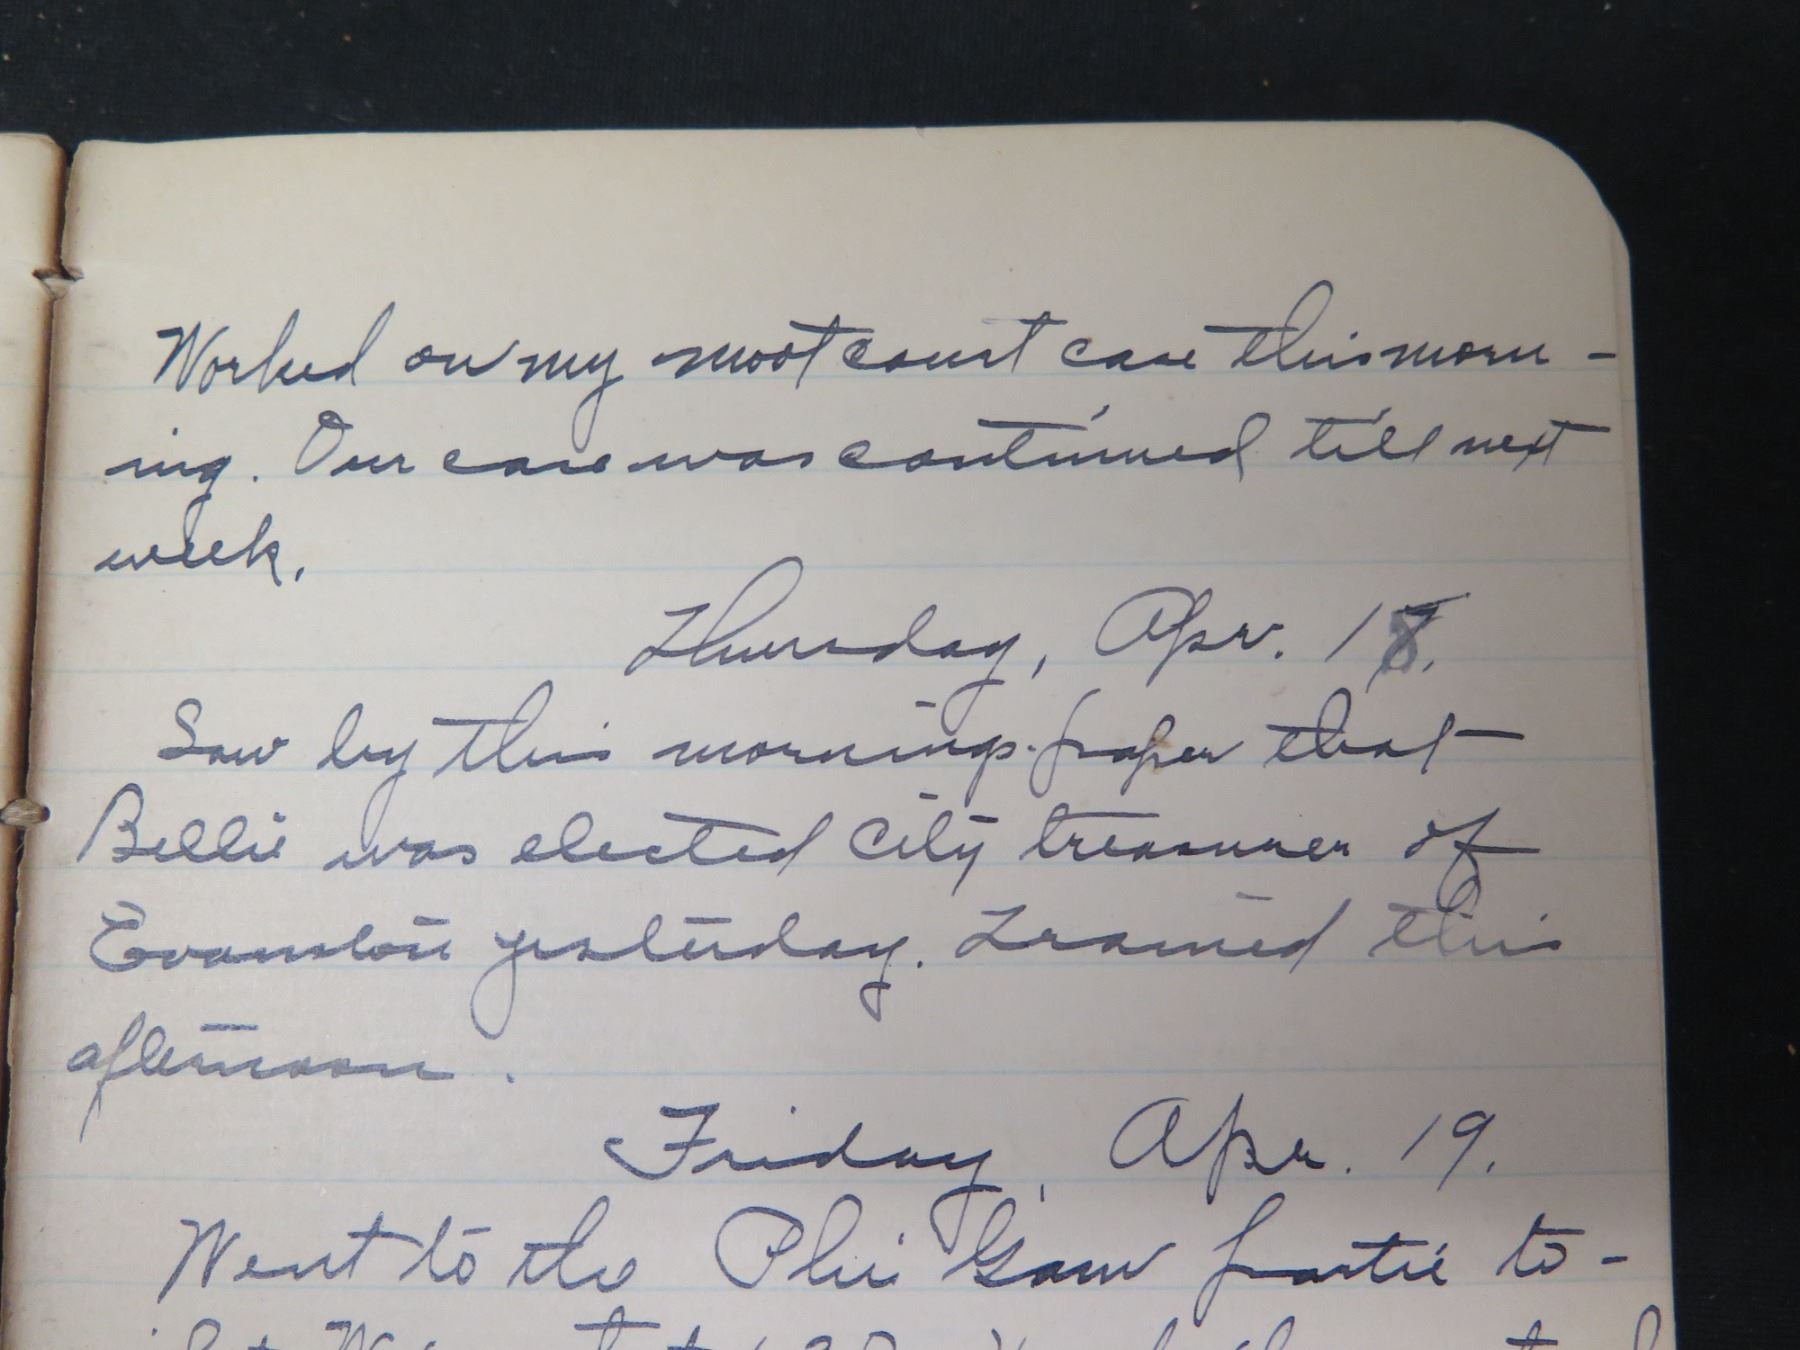 Worked on my moot court case this morn-
ing. Our case was continued till next
week.
Thursday, Apr. 18.
Saw by this mornings paper that
Billie was elected city treasurer of
Evanston yesterday. Trained this
afternoon.
Friday, Apr. 19.
Went to the Phi Gam partie to-